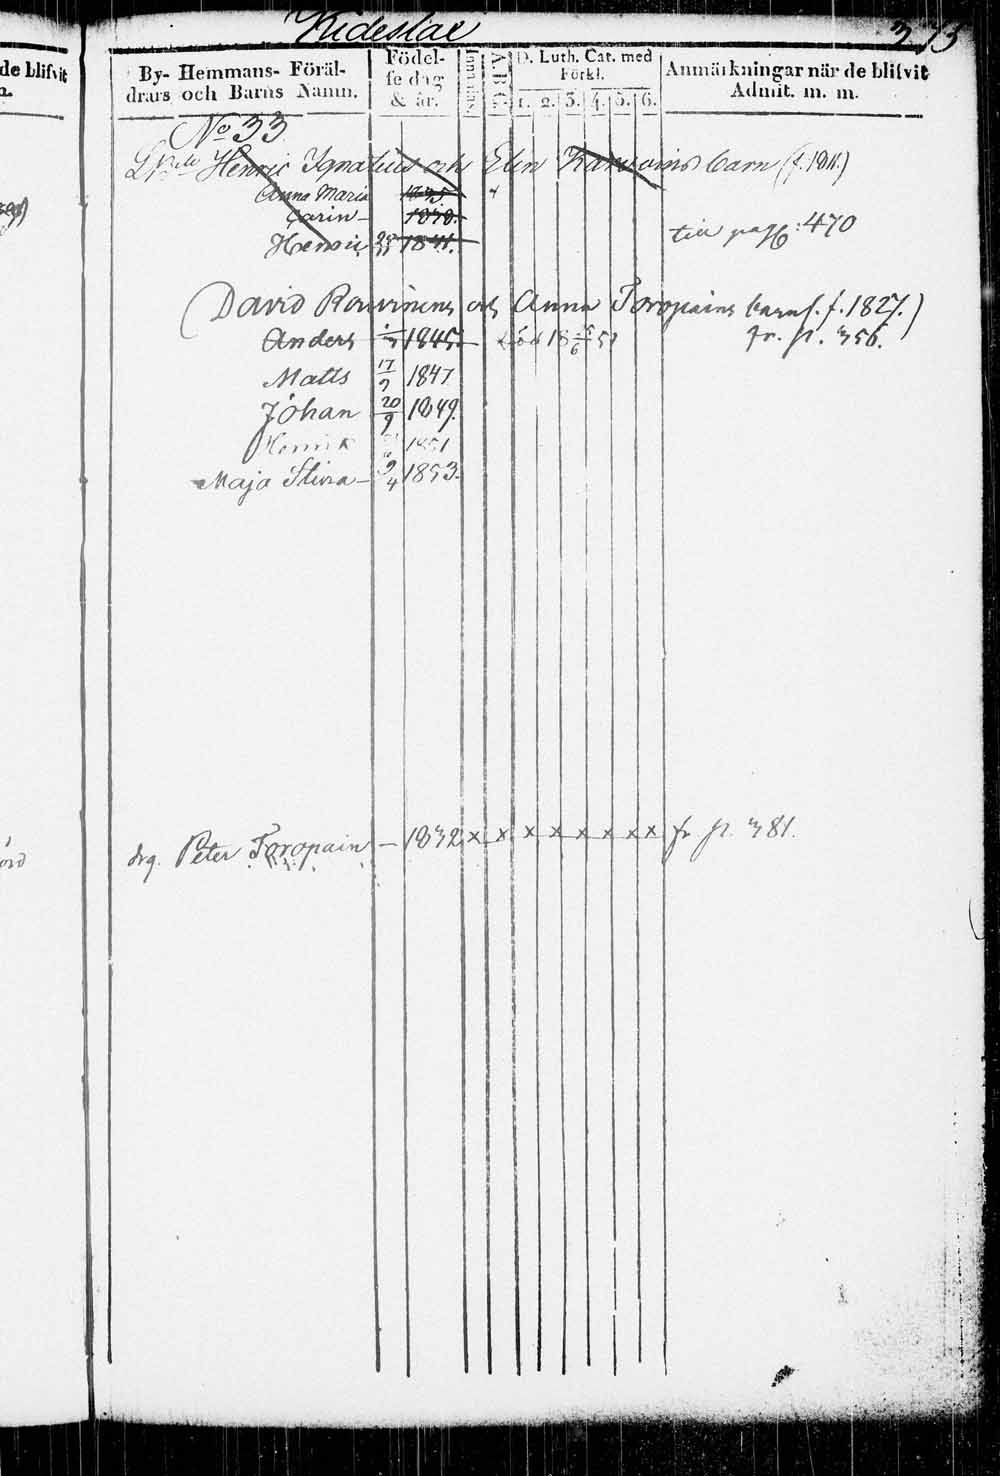 Kideslax 373
de blifvit
By- Hemmans- Föräl-
drars och Barns Namn.
Födel-
se dag
& år.
Innanläs.
A.B.C.
D. Luth. Cat. med
Förkl.
1. 2. 3. 4. 5. 6.
Anmärkningar när de blifvit
Admit. m. m.
No 33
Henric Ignatius och Elin barn (f. 1811)
Anna Maria 1835.
Carin - 1838.
Henric 1841.
till pag: 470
(David Rouvinens och Anna Toropains barn f. f. 1827.)
Anders 1845. död 18 6 51 fr. p. 356.
Matts 17 1847
Johan 20/9 1849.
Henrik 1851
Maja Stina - 9/4 1853.
drg. Peter Toropain - 1832 x x x x x x x x fr p. 381.